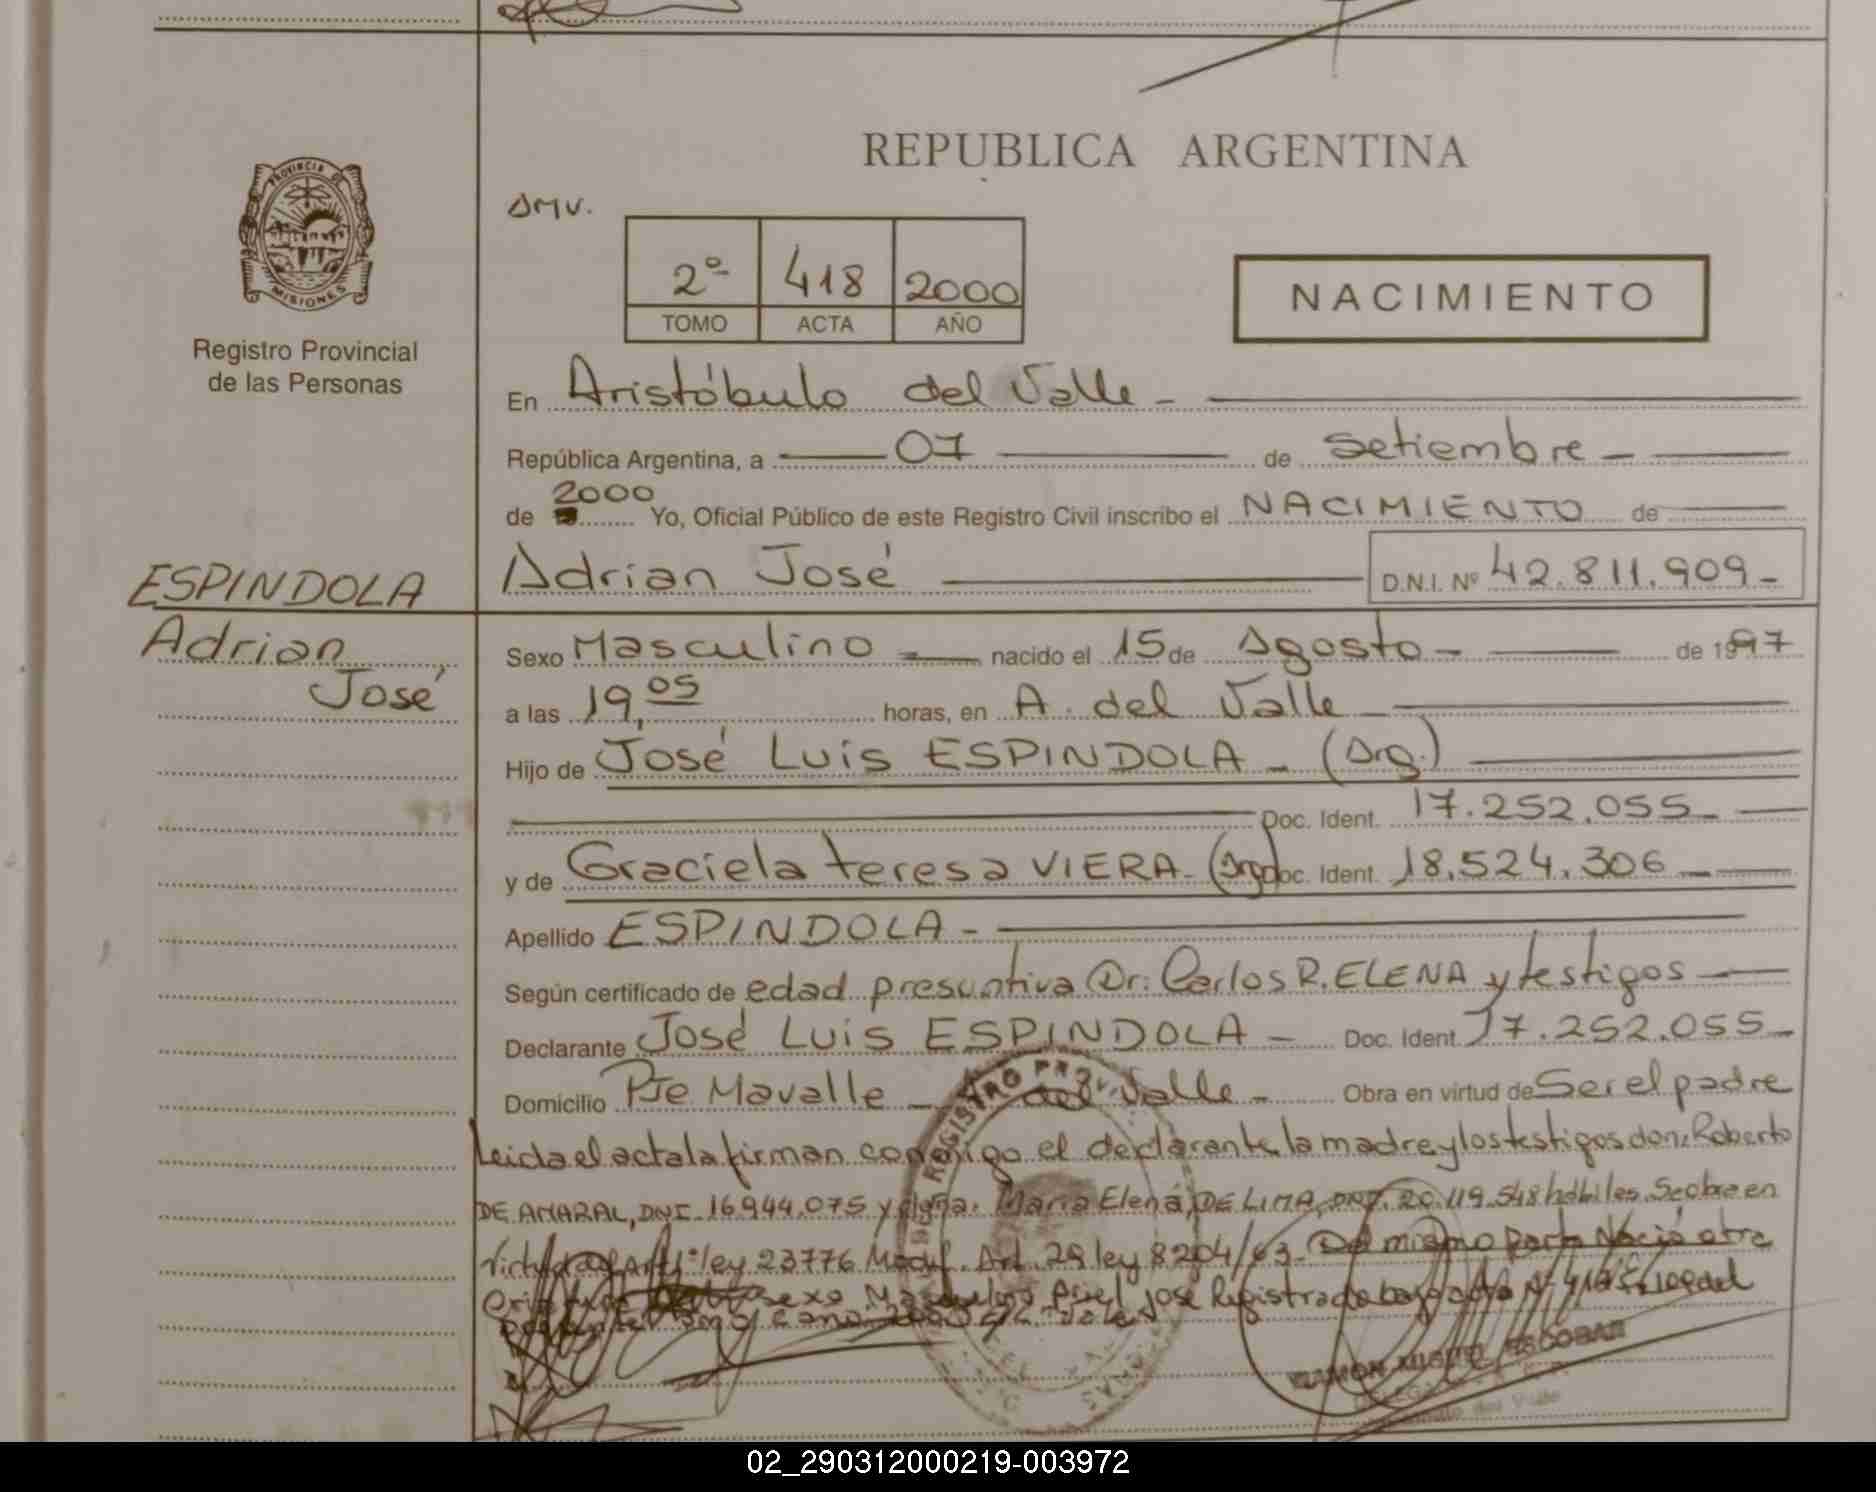 REPUBLICA ARGENTINA
PROVINCIA DE
MISIONES
Registro Provincial
de las Personas
AMV.
2º 418 2000
TOMO ACTA AÑO
NACIMIENTO
En Aristóbulo del Valle -
República Argentina, a 07 de Setiembre -
de 2000 Yo, Oficial Público de este Registro Civil inscribo el NACIMIENTO de
ESPINDOLA
Adrian José
Adrian José D.N.I. Nº 42.811.909-
Sexo Masculino nacido el 15 de Agosto - de 1997
a las 19,05 horas, en A. del Valle
Hijo de José Luis ESPINDOLA - (Arg.)
Doc. Ident. 17.252.055-
y de Graciela teresa VIERA - (Arg) Doc. Ident. 18.524.306
Apellido ESPINDOLA -
Según certificado de edad presuntiva Dr: Carlos R. ELENA y testigos
Declarante José Luis ESPINDOLA - Doc. Ident. 17.252.055-
Domicilio Pje Mavalle - del Valle - Obra en virtud de Ser el padre
Leida el acta la firman conmigo el declarante, la madre y los testigos don: Roberto
DE AMARAL, DNI. 16.944.075 y doña: Maria Elena DE LIMA, DNI. 20.119.548 hábiles. Se obra en
virtud del Art 1º ley 23776 Modif. Art. 29 ley 8204/63- Del mismo parto Nació otra
sexo Masculino José Registrado bajo acta Nº
REGISTRO PROV
RAMON MIGUEL ESCOBAR
02_290312000219-003972